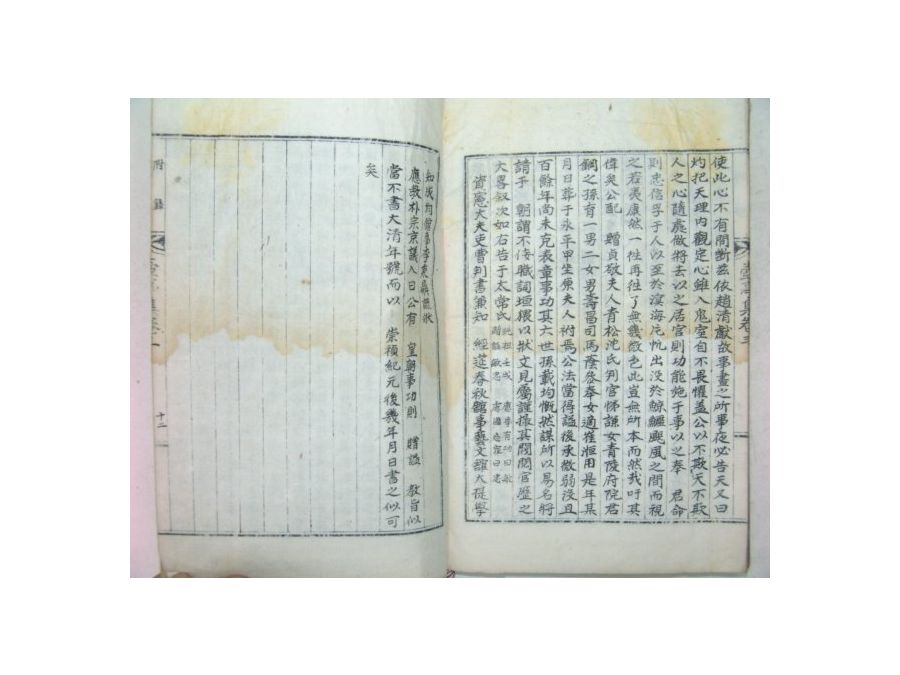 使此心不有間断玆依趙淸獻故事晝之所事夜必告天又曰
灼把天理內觀定心雖入鬼室自不畏懼盖公以不欺天不欺
人之心隨處做將去以之居官則功能施于事以之奉 君命
則忠信孚于人以至於溟海片帆出没於鯨鱷颶風之間而視
之若夷庚然一徃再徃了無幾微色此豈無所本而然哉吁其
偉矣公配 贈貞敬夫人青松沈氏判官悌謙女青陵府院君
鋼之孫有一男二女男壽昌司馬蔭叅奉女適崔 是年某
月日葬于永平甲坐原夫人祔焉公法當得諡後承微弱没且
百餘年尚未克表章事功其六世孫載均慨然謀所以易名將
請于 朝謂不侫職詞垣猥以狀文見屬謹撮其閥閱官歷之
大畧叙次如右告于太常氏
資憲大夫吏曹判書兼知 經筵春秋館事藝文館大提學
知成均館事李 謹狀
應敎朴宗京議入曰公有 皇朝事功則 贈諡 敎旨似
當不書大淸年號而以 崇禎紀元後幾年月日書之似可
矣
附錄
十二